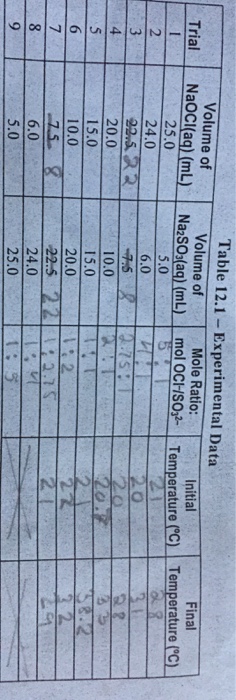 Table 12.1 – Experimental Data
Trial Volume of NaOCl(aq) (mL) Volume of Na2SO3(aq) (mL) Mole Ratio: mol OCl-/SO3²⁻ Initial Temperature (°C) Final Temperature (°C)
1 25.0 5.0 5:1 21 28
2 24.0 6.0 4:1 20 31
3 22.5 22 7.5 8 2.75:1 20 28
4 20.0 10.0 2:1 33
5 15.0 15.0 1:1 21 38.2
6 10.0 20.0 1:2 22 32
7 7.5 8 22.5 22 1:2.75 21 29
8 6.0 24.0 1:4
9 5.0 25.0 1:5